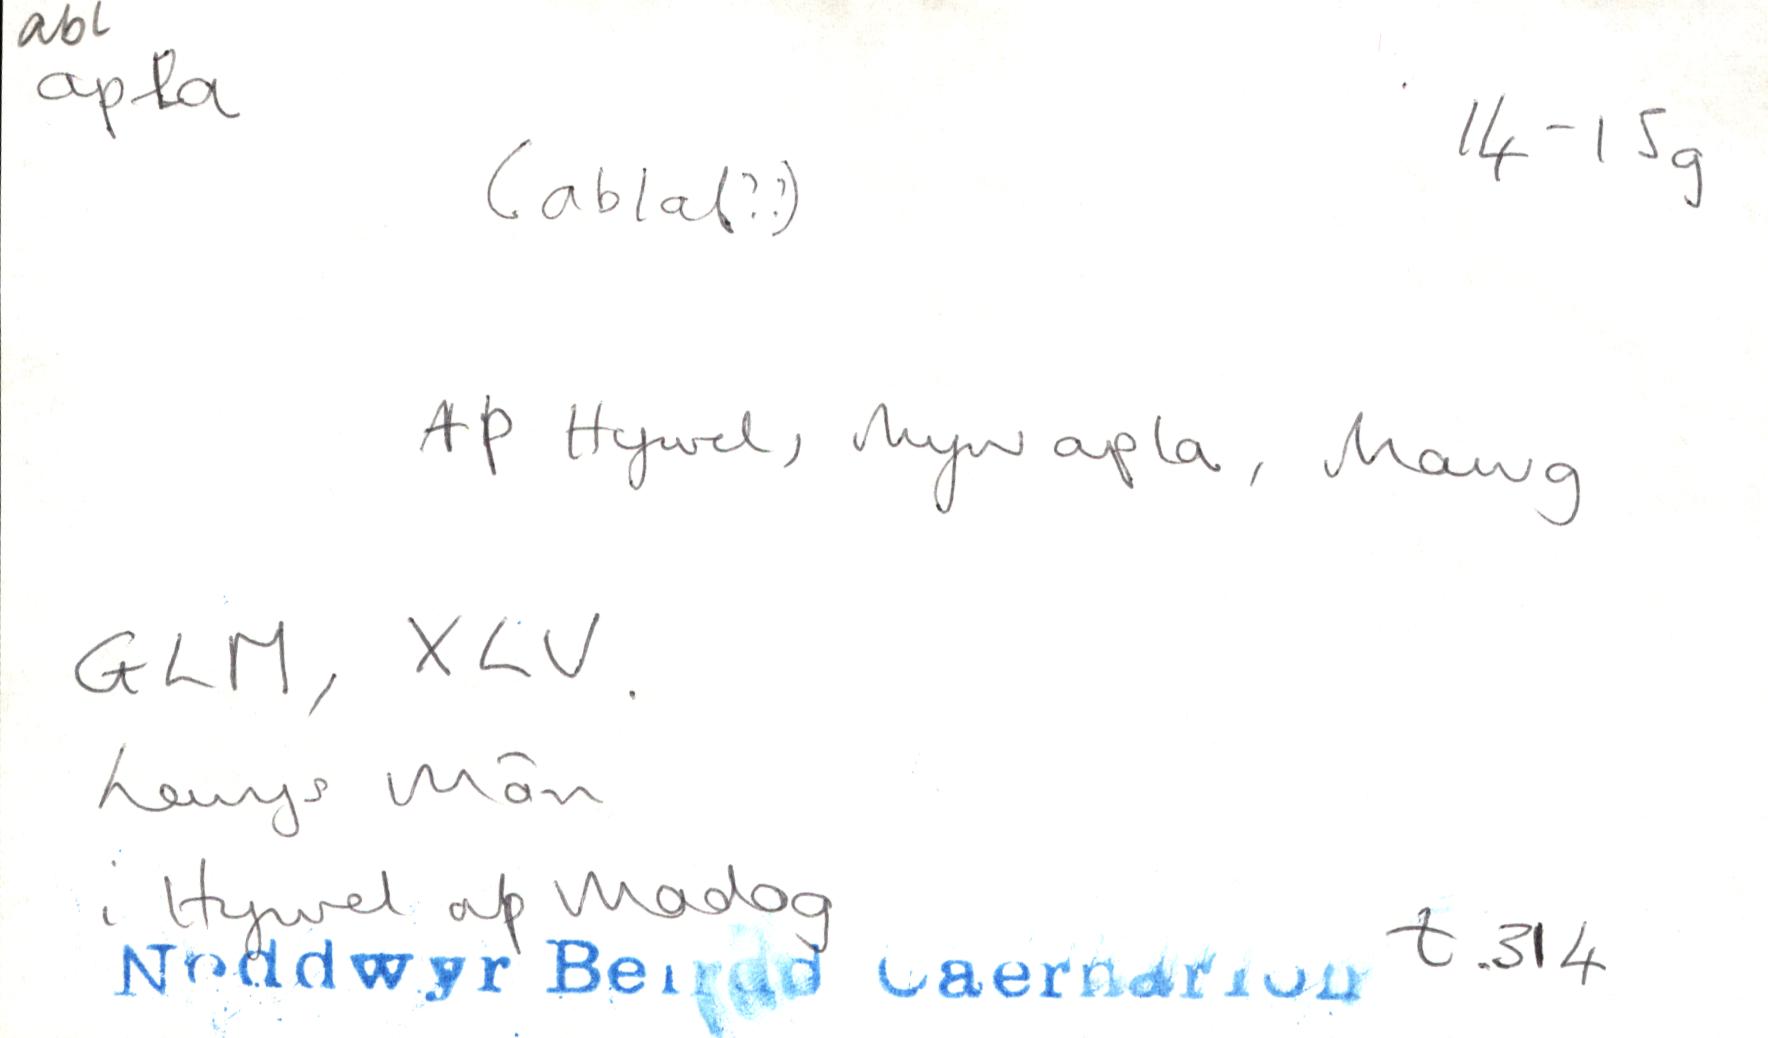 abl
apla
14-15g
(abla(??)
Ap Hywel, Myw apla, Mawg
GLM, XLV.
Lewys Môn
i Hywel ap Madog
t.314
Noddwyr Beirdd Caernarfon